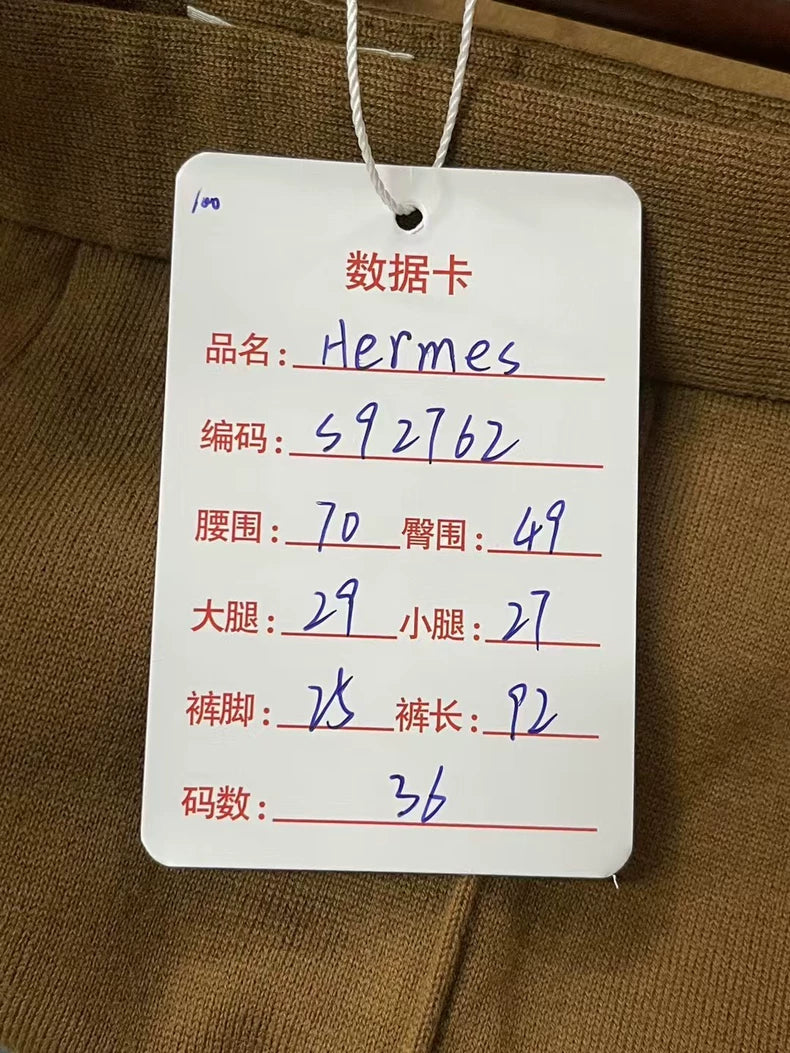 100
数据卡
品名: Hermes
编码: S92762
腰围: 70 臀围: 49
大腿: 29 小腿: 27
裤脚: 25 裤长: 92
码数: 36